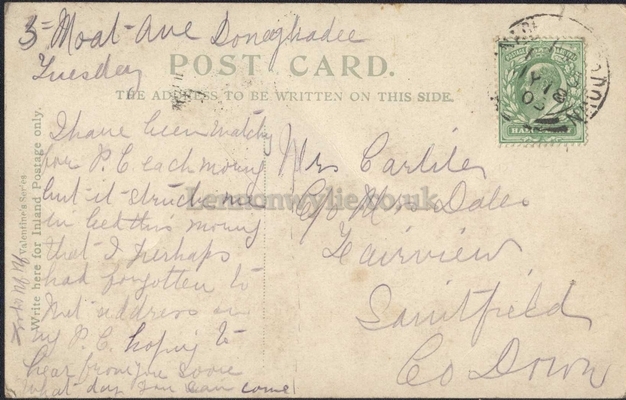 3 = Moat - Ave Donaghadee
Tuesday
POST CARD.
THE ADDRESS TO BE WRITTEN ON THIS SIDE.
HALFPENNY
Write here for Inland Postage only.
Valentine's Series
I have been watchg
for P.C each morng
but - it - struck me
in bed this morng
that I perhaps
had forgotten to
put address on
my P.C. hoping to
hear from you soon
what - day you can come
Mrs Carlile
C/o Mrs Dales
Fairview
Saintfield
Co Down
Lennonwylie.co.uk